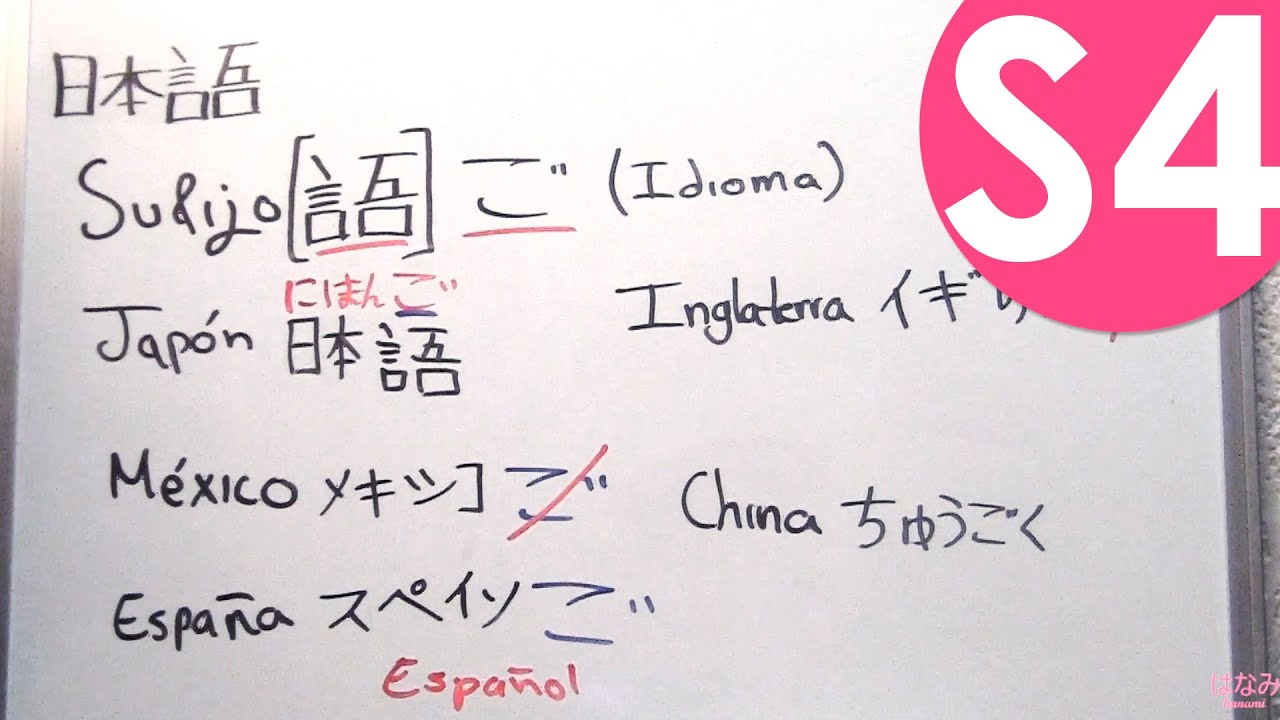 日本語
S4
Sufijo [語] ご (Idioma)
にほんご
Japón 日本語
Inglaterra イギ
México メキシコ ご
China ちゅうごく
España スペイン ご
Español
はなみ
hanami